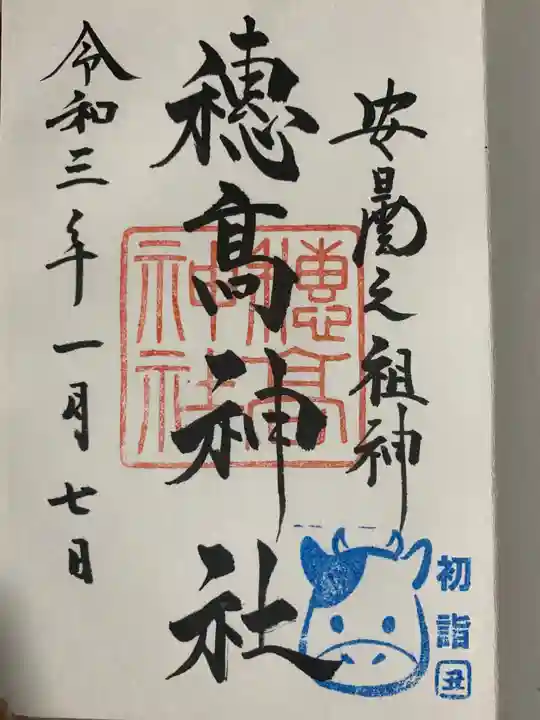 安曇之祖神
穂髙神社
令和三年一月七日
穗高神社
初詣
丑